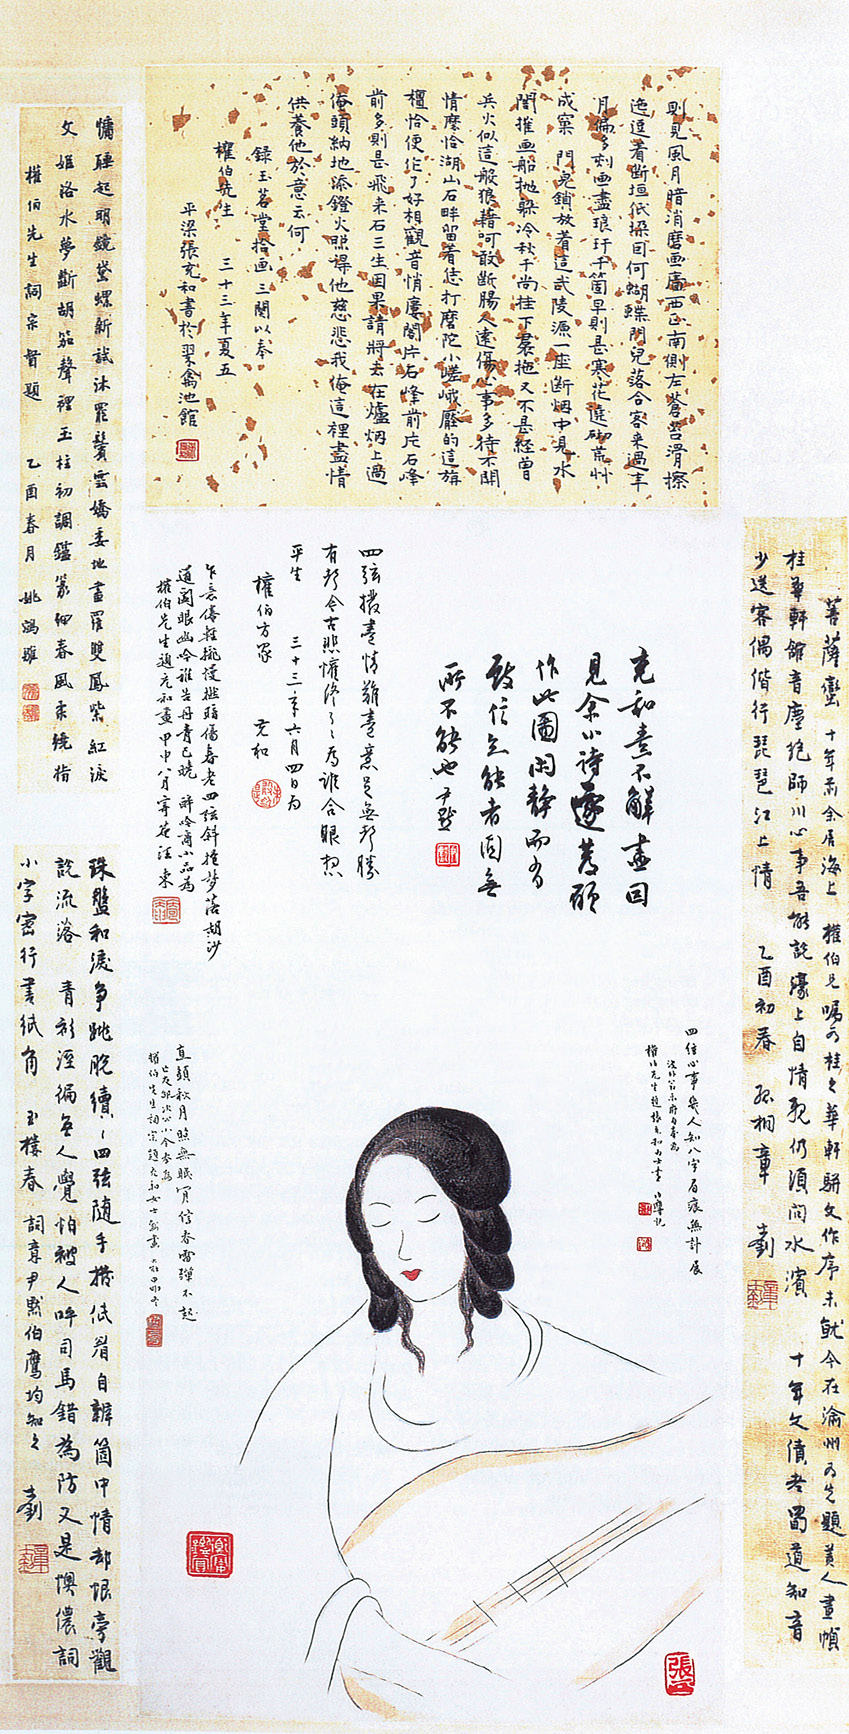 則見風月暗消磨畫廧西正南側左蒼苔滑擦
逶逗著斷垣低垜因何蝴蝶門兒落合客來過年
月偏多刻画盡琅玕千箇早則是寒花遶砌荒艸
成窠 門兒鎖放著這武陵源一座斷烟中見水
閣摧画船拋躲冷秋千尚挂下裠拖又不是經曾
兵火似這般狼藉呵敢斷腸人遠傷心事多待不關
情麼恰湖山石畔留着你打磨陀小嵯峨壓的這旃
檀恰便作了好相觀音悄廔閣片石峰前片石峰
前多則是飛來石三生因果請將去在爐烟上過
俺頭納地添鐙火照得他慈悲我俺這裡盡情
供養他於意云何
錄玉茗堂拾画三闋以奉
權伯先生 三十三年夏五
平梁張充和書於翠禽池館
慵睡起明鏡黛螺新試沐罷鬢雲嬌委地畫羅雙鳳紫 紅淚
文姬洛水夢斷胡笳聲裡玉柱初調鑪篆細春風柔繞指
權伯先生詞宗督題 乙酉春月 姚鵷雛
充和素不解畫因
見余小詩遂發願
作此圖閑静而有
致信之能者固無
所不能也 尹默
四弦撥盡情難盡意足無聲勝
有聲今古悲懽終了了為誰合眼想
平生 三十三年六月四日為
權伯方家 充和
乍長儔輕攏慢撚暗傷春老四弦斜抱夢落胡沙
道閣眼幽吟誰告丹青已曉 醉吟商小品為
權伯先生題充和畫甲申八月寄庵汪東
菩薩蠻 十年前余居海上 權伯兄嘱为桂之華軒駢文作序未就今在渝州为先題美人畫幀
桂華軒館音塵絶師川心事吾能説濠上自情親仍須問水濱 十年文債老蜀道知音
少送客偶偕行琵琶江上情 乙酉初春 孤桐章 釗
四住心事幾人知八字眉痕無計展
權伯先生題張充和女士畫 伯鷹
直頭秋月照無眠買信春雷彈不起
權伯先生詞宗題充和女士畫
珠盤和淚爭跳脫續續四弦随手撥低眉自辦箇中情却恨旁觀
説流落 青衫溼徧無人覺怕被人呼司馬錯為防又是懊儂詞
小字密行書紙角 玉樓春 詞意尹默伯鷹均知之 釗
張